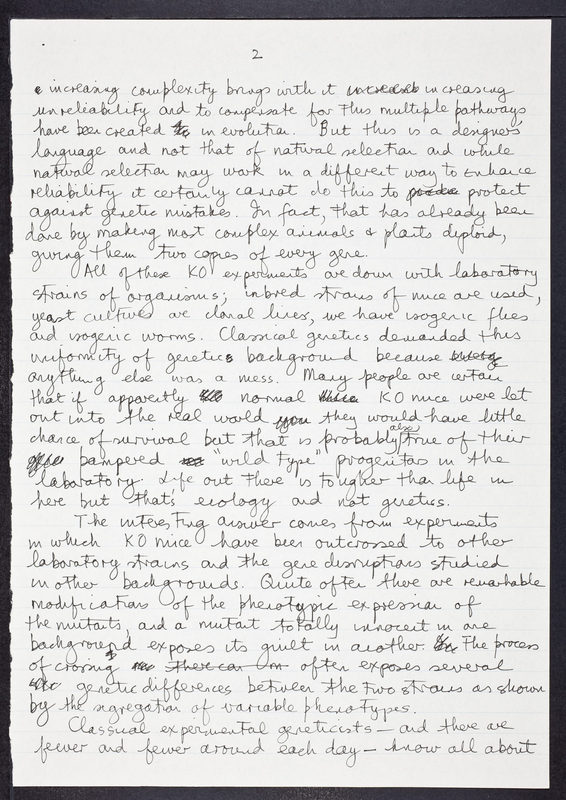 2
increasing complexity brings with it increased increasing
unreliability and to compensate for this multiple pathways
have been created in evolution. But this is a designers'
language and not that of natural selection and while
natural selection may work in a different way to enhance
reliability it certainly cannot do this to protect
against genetic mistakes. In fact, that has already been
done by making most complex animals & plants diploid,
giving them two copies of every gene.
All of these KO experiments are down with laboratory
strains of organisms; inbred strains of mice are used,
yeast cultures are clonal lines, we have isogenic flies
and isogenic worms. Classical genetics demanded this
uniformity of genetic background because
anything else was a mess. Many people are certain
that if apparently normal mice KO mice were let
out into the real world they would have little
chance of survival but that is probably also true of their
pampered "wild type" progenitors in the
laboratory. Life out there is tougher than life in
here but that's ecology and not genetics.
The interesting answer comes from experiments
in which KO mice have been outcrossed to other
laboratory strains and the gene disruptions studied
in other backgrounds. Quite often there are remarkable
modifications of the phenotypic expression of
the mutants, and a mutant totally innocent in one
background exposes its guilt in another. The process
of crossing there can in often exposes several
genetic differences between the two strains as shown
by the segregation of variable phenotypes.
Classical experimental geneticists – and there are
fewer and fewer around each day – know all about